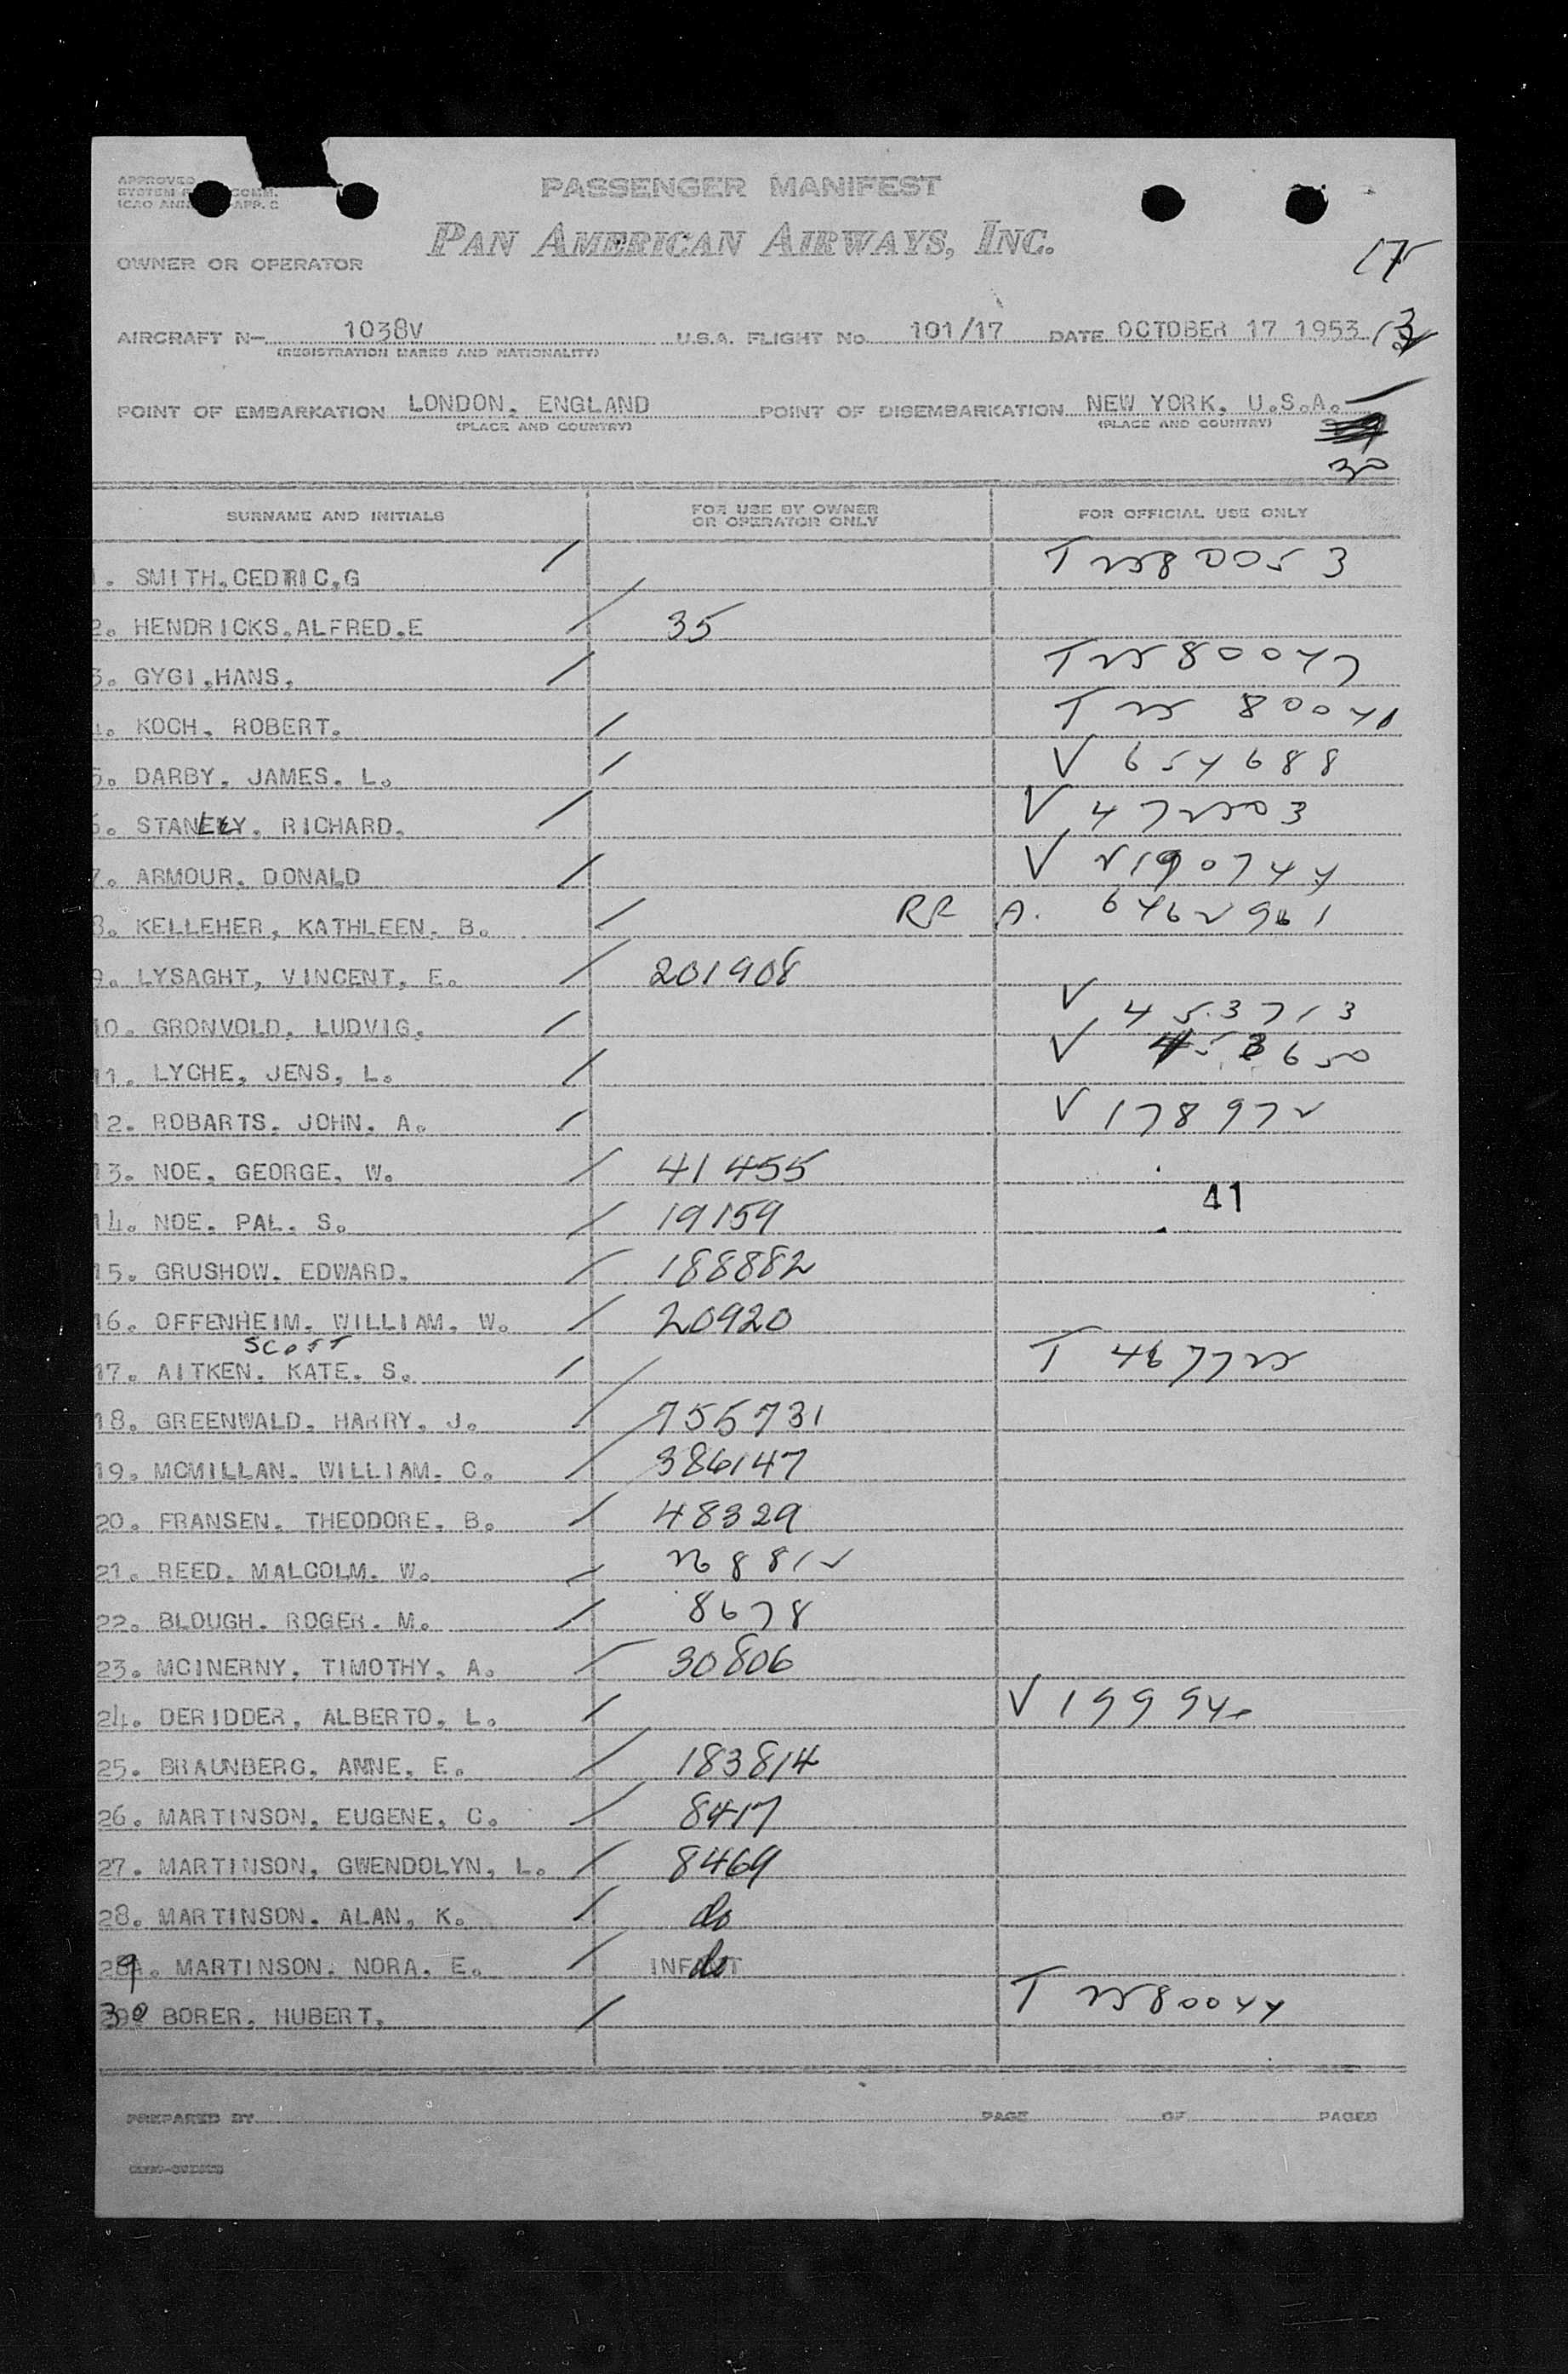 APPROVED
PASSENGER MANIFEST
PAN AMERICAN AIRWAYS, INC.
OWNER OR OPERATOR
AIRCRAFT N— 1038V U.S.A. FLIGHT No. 101/17 DATE OCTOBER 17 1953
(REGISTRATION MARKS AND NATIONALITY)
POINT OF EMBARKATION LONDON, ENGLAND POINT OF DISEMBARKATION NEW YORK, U.S.A.
(PLACE AND COUNTRY) (PLACE AND COUNTRY)
30
SURNAME AND INITIALS FOR USE BY OWNER OR OPERATOR ONLY FOR OFFICIAL USE ONLY
1. SMITH,CEDRIC,G /
2. HENDRICKS,ALFRED.E / 35
3. GYGI,HANS, /
4. KOCH, ROBERT. /
5. DARBY, JAMES. L. / V 654688
6. STANLEY, RICHARD. /
7. ARMOUR, DONALD /
8. KELLEHER, KATHLEEN, B. / RR A.
9. LYSAGHT, VINCENT, E. / 201908
10. GRONVOLD, LUDVIG, / V 453713
11. LYCHE, JENS, L. / V 453650
12. ROBARTS, JOHN, A. / V 178972
13. NOE, GEORGE, W. / 41455
41
14. NOE, PAL, S. / 19159
15. GRUSHOW, EDWARD. / 188882
16. OFFENHEIM, WILLIAM, W. / 20920
SCOTT
17. AITKEN, KATE, S. /
18. GREENWALD, HARRY, J. / 755731
19. MCMILLAN, WILLIAM. C. / 386147
20. FRANSEN, THEODORE, B. / 48329
21. REED, MALCOLM. W. /
22. BLOUGH, ROGER. M. / 8678
23. MCINERNY, TIMOTHY, A. / 30806
24. DERIDDER, ALBERTO, L. /
25. BRAUNBERG, ANNE, E. / 183814
26. MARTINSON, EUGENE, C. / 8417
27. MARTINSON, GWENDOLYN, L. / 8469
28. MARTINSON, ALAN, K. / do
29. MARTINSON, NORA, E. / INFANT do
30 BORER, HUBERT, /
PREPARED BY PAGE OF PAGES